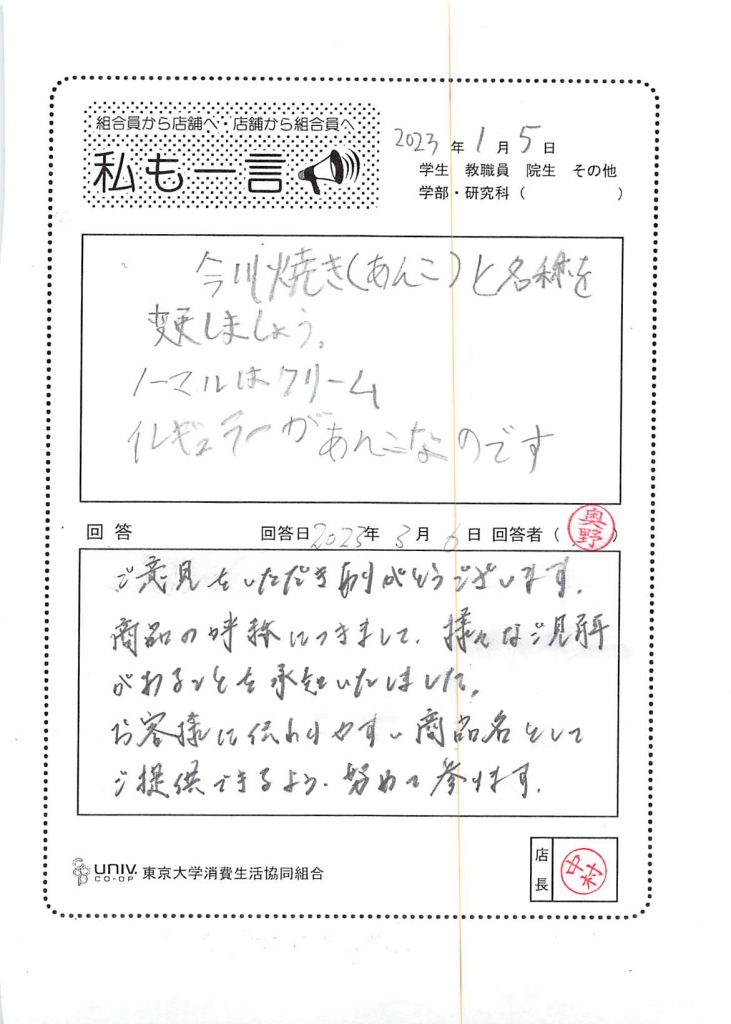 組合員から店舗へ・店舗から組合員へ
私も一言
2023年1月5日
学生 教職員 院生 その他
学部・研究科( )
今川焼き(あんこ)と名称を
変更しましょう。
ノーマルはクリーム
イレギュラーがあんこなのです
回答 回答日2023年3月6日 回答者(奥野)
ご意見をいただき有りがとうございます.
商品の呼称につきまして、様々なご見解
があることを承知いたしました。
お客様に伝わりやすい商品名として
ご提供できるよう、努めて参ります.
UNIV. CO-OP 東京大学消費生活協同組合
店長 中村